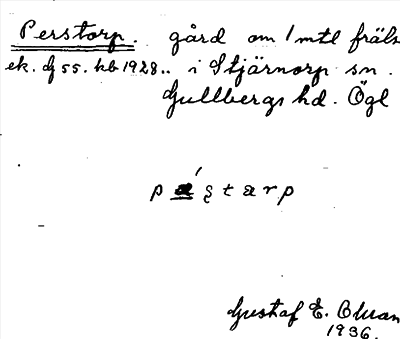 Perstorp. gård om 1 mtl fräls
ek. bl 55. kb 1928.. i Stjärnorp sn.
Gullbergs hd. Ögl
Gustaf E. Olsson
1936.